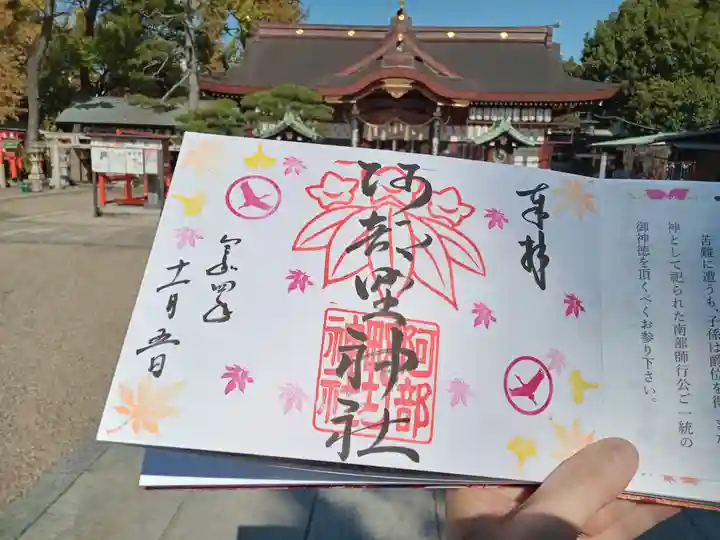 奉拝
阿部野神社
阿部野神社
令和四年
十一月五日
苦難に遭うも、子孫は爵位
神として祀られた南部師行公ご一統の
御神徳を頂くべくお参り下さい。